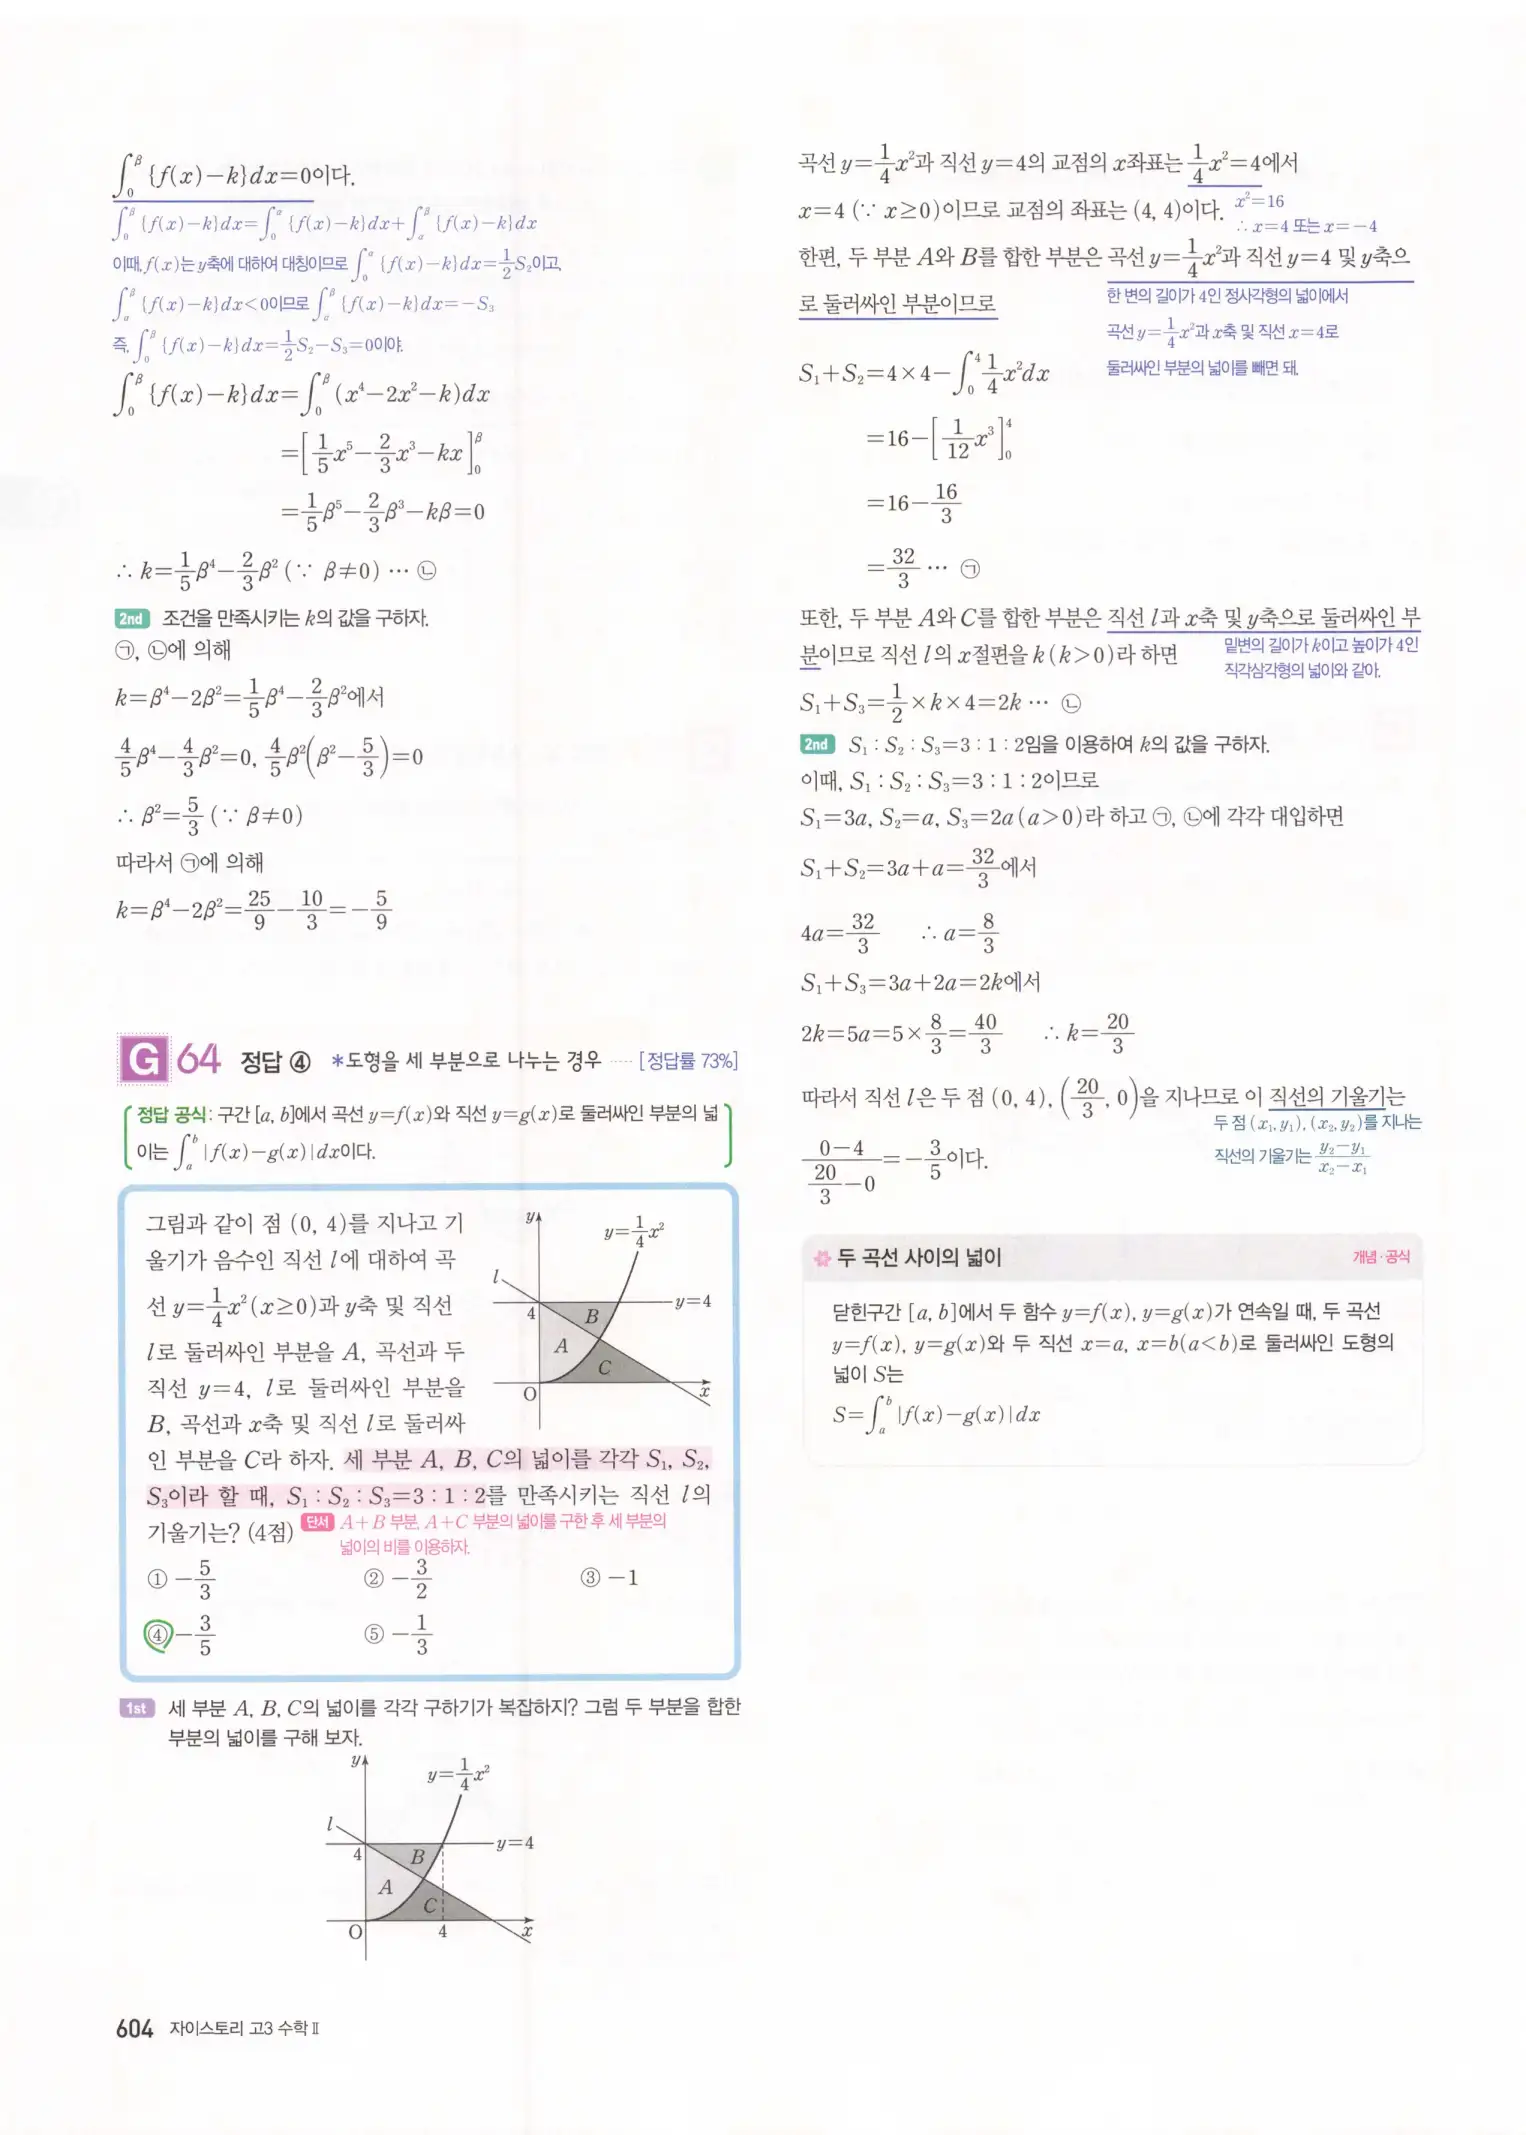 ∫₀^β {f(x)−k}dx=0이다.
∫₀^β {f(x)−k}dx=∫₀^α {f(x)−k}dx+∫_α^β {f(x)−k}dx
이때, f(x)는 y축에 대하여 대칭이므로 ∫₀^α {f(x)−k}dx=1/2 S₂이고,
∫_α^β {f(x)−k}dx<0이므로 ∫_α^β {f(x)−k}dx=−S₃
즉, ∫₀^β {f(x)−k}dx=1/2 S₂−S₃=0이야.
∫₀^β {f(x)−k}dx=∫₀^β (x⁴−2x²−k)dx
=[1/5 x⁵−2/3 x³−kx]₀^β
=1/5 β⁵−2/3 β³−kβ=0
∴ k=1/5 β⁴−2/3 β² (∵ β≠0) ⋯ ㉡
2nd 조건을 만족시키는 k의 값을 구하자.
㉠, ㉡에 의해
k=β⁴−2β²=1/5 β⁴−2/3 β²에서
4/5 β⁴−4/3 β²=0, 4/5 β²(β²−5/3)=0
∴ β²=5/3 (∵ β≠0)
따라서 ㉠에 의해
k=β⁴−2β²=25/9−10/3=−5/9
G 64 정답 ④ *도형을 세 부분으로 나누는 경우 ····· [정답률 73%]
정답 공식: 구간 [a, b]에서 곡선 y=f(x)와 직선 y=g(x)로 둘러싸인 부분의 넓
이는 ∫ₐᵇ |f(x)−g(x)|dx이다.
그림과 같이 점 (0, 4)를 지나고 기
울기가 음수인 직선 l에 대하여 곡
선 y=1/4 x²(x≥0)과 y축 및 직선
l로 둘러싸인 부분을 A, 곡선과 두
직선 y=4, l로 둘러싸인 부분을
B, 곡선과 x축 및 직선 l로 둘러싸
인 부분을 C라 하자. 세 부분 A, B, C의 넓이를 각각 S₁, S₂,
S₃이라 할 때, S₁ : S₂ : S₃=3 : 1 : 2를 만족시키는 직선 l의
기울기는? (4점) 단서 A+B 부분, A+C 부분의 넓이를 구한 후 세 부분의
넓이의 비를 이용하자.
y
y=1/4 x²
l
4
y=4
B
A
C
O
x
① −5/3 ② −3/2 ③ −1
④ −3/5 ⑤ −1/3
1st 세 부분 A, B, C의 넓이를 각각 구하기가 복잡하지? 그럼 두 부분을 합한
부분의 넓이를 구해 보자.
y
y=1/4 x²
l
y=4
4
B
A
C
O
4
x
604 자이스토리 고3 수학 Ⅱ
곡선 y=1/4 x²과 직선 y=4의 교점의 x좌표는 1/4 x²=4에서
x=4 (∵ x≥0)이므로 교점의 좌표는 (4, 4)이다. x²=16
∴ x=4 또는 x=−4
한편, 두 부분 A와 B를 합한 부분은 곡선 y=1/4 x²과 직선 y=4 및 y축으
로 둘러싸인 부분이므로
한 변의 길이가 4인 정사각형의 넓이에서
곡선 y=1/4 x²과 x축 및 직선 x=4로
둘러싸인 부분의 넓이를 빼면 돼.
S₁+S₂=4×4−∫₀⁴ 1/4 x²dx
=16−[1/12 x³]₀⁴
=16−16/3
=32/3 ⋯ ㉠
또한, 두 부분 A와 C를 합한 부분은 직선 l과 x축 및 y축으로 둘러싸인 부
분이므로 직선 l의 x절편을 k(k>0)라 하면
밑변의 길이가 k이고 높이가 4인
직각삼각형의 넓이와 같아.
S₁+S₃=1/2×k×4=2k ⋯ ㉡
2nd S₁ : S₂ : S₃=3 : 1 : 2임을 이용하여 k의 값을 구하자.
이때, S₁ : S₂ : S₃=3 : 1 : 2이므로
S₁=3a, S₂=a, S₃=2a(a>0)라 하고 ㉠, ㉡에 각각 대입하면
S₁+S₂=3a+a=32/3에서
4a=32/3 ∴ a=8/3
S₁+S₃=3a+2a=2k에서
2k=5a=5×8/3=40/3 ∴ k=20/3
따라서 직선 l은 두 점 (0, 4), (20/3, 0)을 지나므로 이 직선의 기울기는
(0−4)/(20/3−0)=−3/5이다.
두 점 (x₁, y₁), (x₂, y₂)를 지나는
직선의 기울기는 (y₂−y₁)/(x₂−x₁)
두 곡선 사이의 넓이 개념·공식
닫힌구간 [a, b]에서 두 함수 y=f(x), y=g(x)가 연속일 때, 두 곡선
y=f(x), y=g(x)와 두 직선 x=a, x=b(a<b)로 둘러싸인 도형의
넓이 S는
S=∫ₐᵇ |f(x)−g(x)|dx